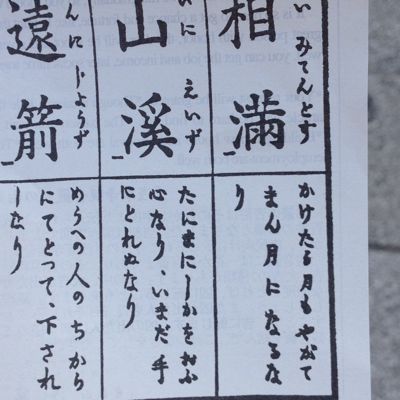 い みてんとす
相満
いに えいず
山溪
に しようず
遠箭
かけたる月もやがて
まん月になるな
り
たにまにしかをおふ
心なり、いまだ手
にとれぬなり
めうへの人のちから
にてとつて、下され
しなり